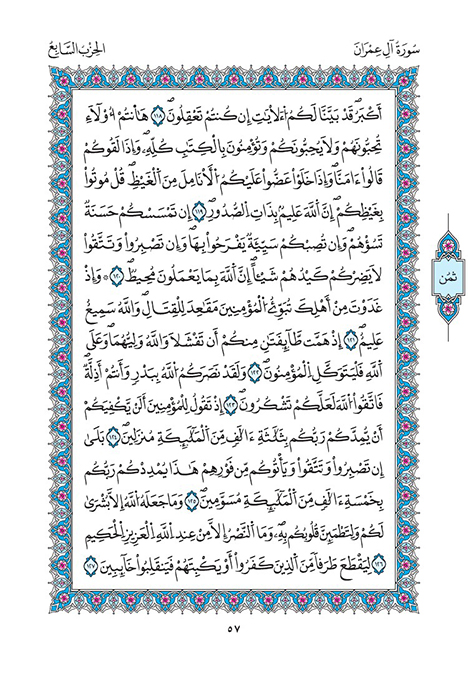 سُورَةُ آلِ عِمْرَانَ
الحِزْبُ السَّابِعُ
أَكْبَرُ قَدْ بَيَّنَّا لَكُمُ اُ۬لْأٓيَٰتِ إِن كُنتُمْ تَعْقِلُونَ ١١٨ هَٰأَنتُمْ أُوْلَآءِ
تُحِبُّونَهُمْ وَلَا يُحِبُّونَكُمْ وَتُؤْمِنُونَ بِالْكِتَٰبِ كُلِّهِۦ وَإِذَا لَقُوكُمْ
قَالُوٓاْ ءَامَنَّا وَإِذَا خَلَوْاْ عَضُّواْ عَلَيْكُمُ اُ۬لْأَنَامِلَ مِنَ اَ۬لْغَيْظِ قُلْ مُوتُواْ
بِغَيْظِكُمْ إِنَّ اَ۬للَّهَ عَلِيمُۢ بِذَاتِ اِ۬لصُّدُورِ ١١٩ إِن تَمْسَسْكُمْ حَسَنَةٌ
تَسُؤْهُمْ وَإِن تُصِبْكُمْ سَيِّئَةٌ يَفْرَحُواْ بِهَا وَإِن تَصْبِرُواْ وَتَتَّقُواْ
لَا يَضِرْكُمْ كَيْدُهُمْ شَيْـًٔا إِنَّ اَ۬للَّهَ بِمَا يَعْمَلُونَ مُحِيطٌ ١٢٠ ۞ وَإِذْ
غَدَوْتَ مِنْ أَهْلِكَ تُبَوِّئُ اُ۬لْمُؤْمِنِينَ مَقَٰعِدَ لِلْقِتَالِ وَاللَّهُ سَمِيعٌ
عَلِيمٌ ١٢١ إِذْ هَمَّت طَّآئِفَتَٰنِ مِنكُمْ أَن تَفْشَلَا وَاللَّهُ وَلِيُّهُمَا وَعَلَى
اَ۬للَّهِ فَلْيَتَوَكَّلِ اِ۬لْمُؤْمِنُونَ ١٢٢ وَلَقَدْ نَصَرَكُمُ اُ۬للَّهُ بِبَدْرٍ وَأَنتُمْ أَذِلَّةٌ
فَاتَّقُواْ اُ۬للَّهَ لَعَلَّكُمْ تَشْكُرُونَ ١٢٣ إِذْ تَقُولُ لِلْمُؤْمِنِينَ أَلَنْ يَّكْفِيَكُمْ
أَنْ يُّمِدَّكُمْ رَبُّكُم بِثَلَٰثَةِ ءَالَٰفٍ مِّنَ اَ۬لْمَلَٰٓئِكَةِ مُنزَلِينَ ١٢٤ بَلَىٰٓ
إِن تَصْبِرُواْ وَتَتَّقُواْ وَيَأْتُوكُم مِّن فَوْرِهِمْ هَٰذَا يُمْدِدْكُمْ رَبُّكُم
بِخَمْسَةِ ءَالَٰفٍ مِّنَ اَ۬لْمَلَٰٓئِكَةِ مُسَوَّمِينَ ١٢٥ وَمَا جَعَلَهُ اُ۬للَّهُ إِلَّا بُشْرَىٰ
لَكُمْ وَلِتَطْمَئِنَّ قُلُوبُكُم بِهِۦ وَمَا اَ۬لنَّصْرُ إِلَّا مِنْ عِندِ اِ۬للَّهِ اِ۬لْعَزِيزِ اِ۬لْحَكِيمِ
١٢٦ لِيَقْطَعَ طَرَفًا مِّنَ اَ۬لَّذِينَ كَفَرُوٓاْ أَوْ يَكْبِتَهُمْ فَيَنقَلِبُواْ خَآئِبِينَ ١٢٧
ثُمُن
٥٧